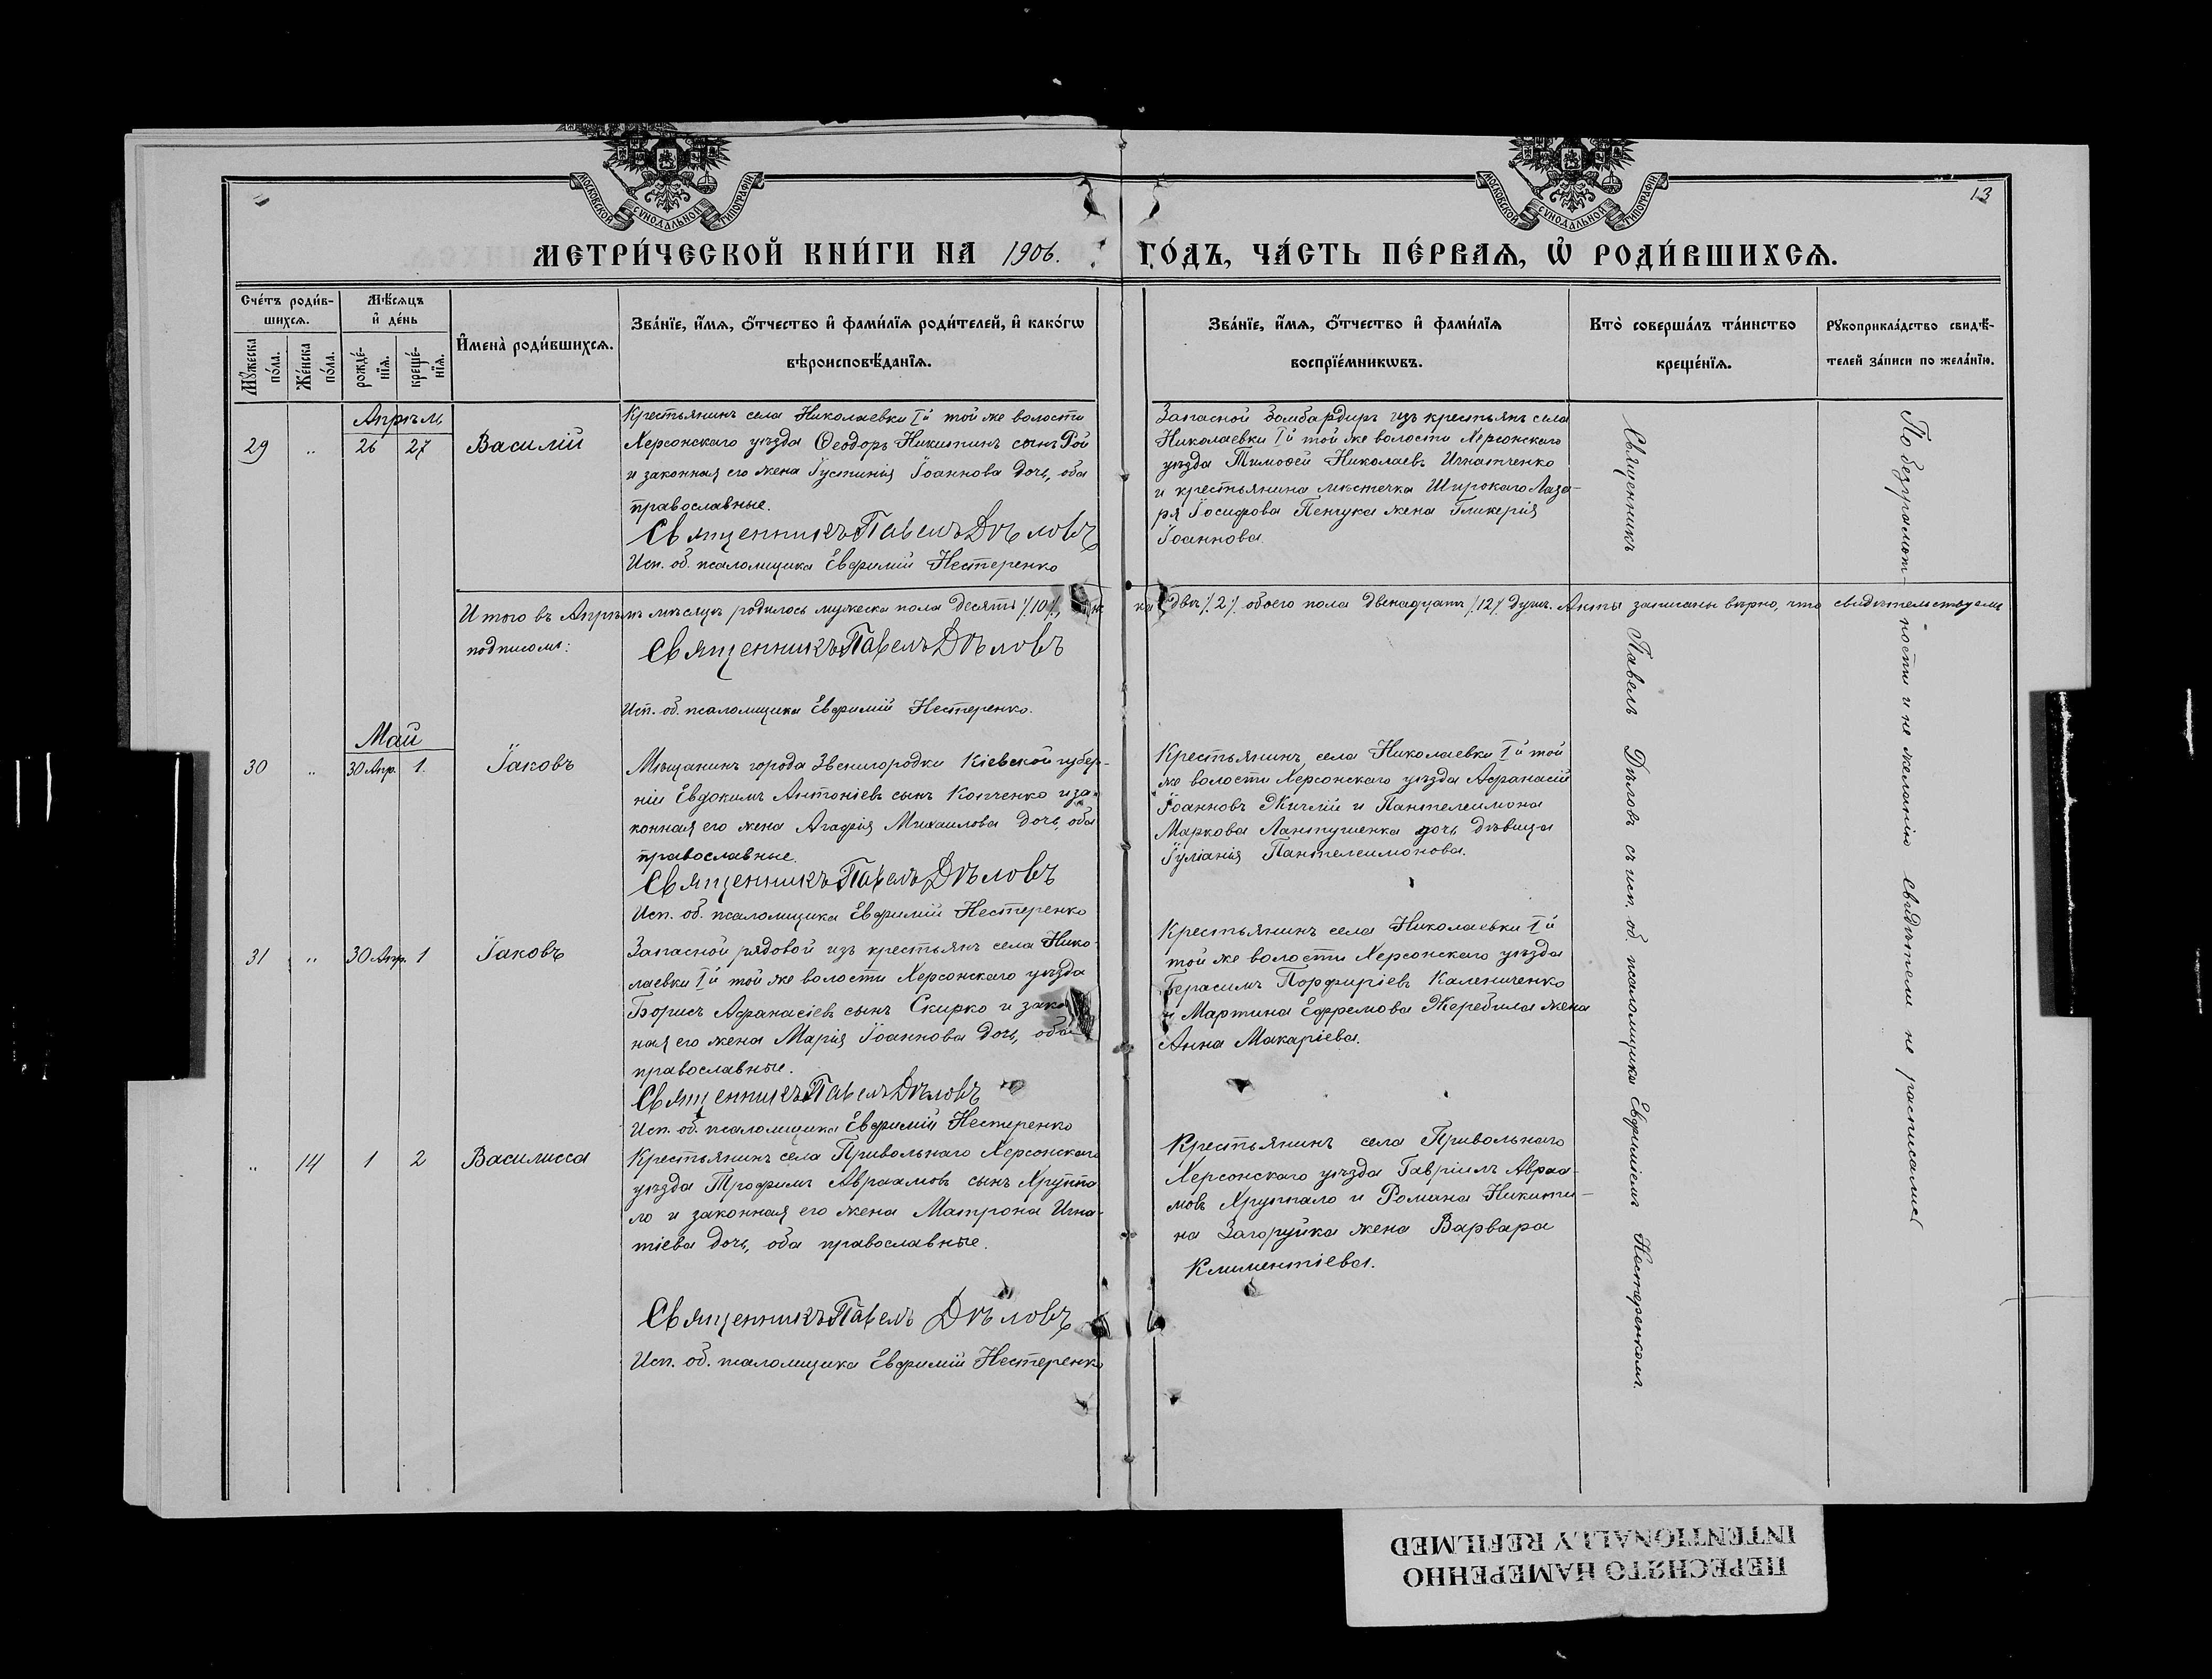 МОСКОВСКОЙ СѴНОДАЛЬНОЙ ТИПОГРАФІИ
МОСКОВСКОЙ СѴНОДАЛЬНОЙ ТИПОГРАФІИ
13
МЕТРИ́ЧЕСКОЙ КНИ́ГИ НА 1906. ГО́ДЪ, ЧА́СТЬ ПЕ́РВАѦ, Ѡ҆ РОДИ́ВШИХСѦ.
Сче́тъ роди́в-
шихсѧ.
Мꙋ́жеска по́ла.
Же́нска по́ла.
Мѣ́сѧцъ
и҆ де́нь
рожде́-
нїѧ.
креще́-
нїѧ.
И҆мена̀ роди́вшихсѧ.
Зва́нїе, и҆́мѧ, ѻ҆́тчество и҆ фами́лїѧ роди́телей, и҆ како́гѡ
вѣроисповѣ́данїѧ.
Зва́нїе, и҆́мѧ, ѻ҆́тчество и҆ фами́лїѧ
воспрїе́мникѡвъ.
Кто̀ соверша́лъ та́инство
креще́нїѧ.
Рꙋкоприкла́дство свидѣ́-
телей за́писи по жела́нїю.
Апрѣль
29 " 26 27 Василій
Крестьянинъ села Николаевки Iй той же волости
Херсонскаго уѣзда Ѳеодоръ Никитинъ сынъ Рой
и законная его жена Іустинія Іоаннова дочь, оба
православные.
Священникъ Павелъ Дѣловъ
Исп. об. псаломщика Евфимій Нестеренко
Запасной бомбардиръ изъ крестьянъ села
Николаевки Iй той же волости Херсонскаго
уѣзда Тимоѳей Николаевъ Игнатченко
и крестьянина мѣстечка Широкаго Лаза-
ря Іосифова Пенчука жена Гликерія
Іоаннова.
Итого въ Апрѣлѣ мѣсяцѣ родилось мужеска пола десять /10/, ка двѣ /2/ обоего пола двенадцать /12/ душъ. Акты записаны вѣрно, что свидѣтельствуемъ
подписомъ:
Священникъ Павелъ Дѣловъ
Исп. об. псаломщика Евфимій Нестеренко.
Май
30 " 30 Апр. 1. Іаковъ
Мѣщанинъ города Звенигородки Кіевской губер-
ніи Евдокимъ Антоніевъ сынъ Копченко и за-
конная его жена Агафія Михаилова дочь, оба
православные.
Священникъ Павелъ Дѣловъ
Исп. об. псаломщика Евфимій Нестеренко
Крестьянинъ села Николаевки Iй той
же волости Херсонскаго уѣзда Афанасій
Іоанновъ и Пантелеимона
Маркова Лантушенка дочь дѣвица
Іуліанія Пантелеимонова.
31 " 30 Апр. 1 Іаковъ
Запасной рядовой изъ крестьянъ села Нико-
лаевки Iй той же волости Херсонскаго уѣзда
Борисъ Афанасіевъ сынъ Скирко и зако
ная его жена Марія Іоаннова дочь, оба
православные.
Священникъ Павелъ Дѣловъ
Исп. об. псаломщика Евфимій Нестеренко
Крестьянинъ села Николаевки Iй
той же волости Херсонскаго уѣзда
Герасимъ Порфиріевъ Калениченко
и Мартина Ефремова Жеребила жена
Анна Макаріева.
" 14 1 2 Василисса
Крестьянинъ села Привольнаго Херсонскаго
уѣзда Трофимъ Авраамовъ сынъ Хрупа
ло и законная его жена Матрона Игна-
тіева дочь, оба православные.
Священникъ Павелъ Дѣловъ
Исп. об. псаломщика Евфимій Нестеренко
Крестьянинъ села Привольнаго
Херсонскаго уѣзда Гавріилъ Авраа-
мовъ Хрупало и Романа Никити-
на Загоруйка жена Варвара
Климентіева.
Священникъ Павелъ Дѣловъ съ исп. об. псаломщика Евфиміемъ Нестеренкомъ.
По безграмот-ности и не желанію свидѣтели не расписались
ПЕРЕСНЯТО НАМЕРЕННО
INTENTIONALLY REFILMED